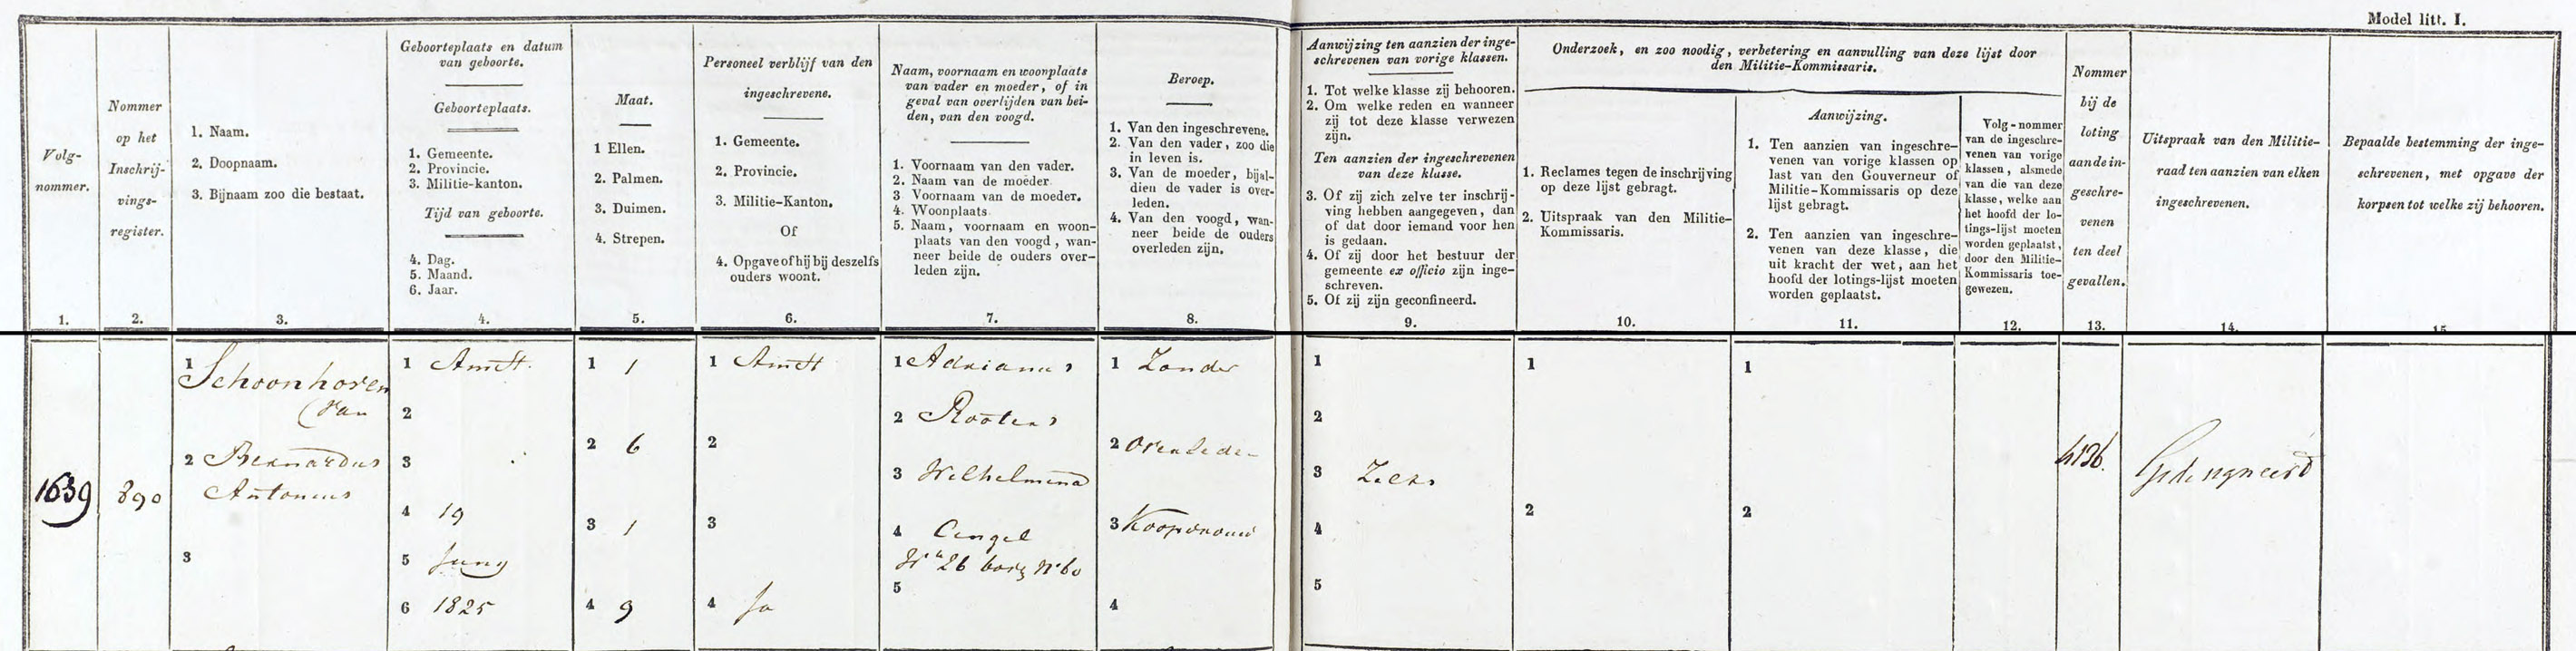 Model litt. I.
Volg-
nommer.
1.
Nommer
op het
Inschrij-
vings-
register.
2.
1. Naam.
2. Doopnaam.
3. Bijnaam zoo die bestaat.
3.
Geboorteplaats en datum
van geboorte.
Geboorteplaats.
1. Gemeente.
2. Provincie.
3. Militie-kanton.
Tijd van geboorte.
4. Dag.
5. Maand.
6. Jaar.
4.
Maat.
1 Ellen.
2. Palmen.
3. Duimen.
4. Strepen.
5.
Personeel verblijf van den
ingeschrevene.
1. Gemeente.
2. Provincie.
3. Militie-Kanton.
Of
4. Opgave of hij bij deszelfs
ouders woont.
6.
Naam, voornaam en woonplaats
van vader en moeder, of in
geval van overlijden van bei-
den, van den voogd.
1. Voornaam van den vader.
2. Naam van de moeder
3 Voornaam van de moeder.
4. Woonplaats
5. Naam, voornaam en woon-
plaats van den voogd, wan-
neer beide de ouders over-
leden zijn.
7.
Beroep.
1. Van den ingeschrevene.
2. Van den vader, zoo die
in leven is.
3. Van de moeder, bijal-
dien de vader is over-
leden.
4. Van den voogd, wan-
neer beide de ouders
overleden zijn.
8.
Aanwijzing ten aanzien der inge-
schrevenen van vorige klassen.
1. Tot welke klasse zij behooren.
2. Om welke reden en wanneer
zij tot deze klasse verwezen
zijn.
Ten aanzien der ingeschrevenen
van deze klasse.
3. Of zij zich zelve ter inschrij-
ving hebben aangegeven, dan
of dat door iemand voor hen
is gedaan.
4. Of zij door het bestuur der
gemeente ex officio zijn inge-
schreven.
5. Of zij zijn geconfineerd.
9.
Onderzoek, en zoo noodig, verbetering en aanvulling van deze lijst door
den Militie-Kommissaris.
1. Reclames tegen de inschrijving
op deze lijst gebragt.
2. Uitspraak van den Militie-
Kommissaris.
10.
Aanwijzing.
1. Ten aanzien van ingeschre-
venen van vorige klassen op
last van den Gouverneur of
Militie-Kommissaris op deze
lijst gebragt.
2. Ten aanzien van ingeschre-
venen van deze klasse, die
uit kracht der wet, aan het
hoofd der lotings-lijst moeten
worden geplaatst.
11.
Volg-nommer
van de ingeschre-
venen van vorige
klassen, alsmede
van die van deze
klasse, welke aan
het hoofd der lo-
tings-lijst moeten
worden geplaatst,
door den Militie-
Kommissaris toe-
gewezen.
12.
Nommer
bij de
loting
aan de in-
geschre-
venen
ten deel
gevallen.
13.
Uitspraak van den Militie-
raad ten aanzien van elken
ingeschrevenen.
14.
Bepaalde bestemming der inge-
schrevenen, met opgave der
korpsen tot welke zij behooren.
15
1639
890
1 Schoonhoven
(Van
2 Bernardus
Antonius
3
1 Amst.
2
3
4 19
5 Juny
6 1825
1 1
2 6
3 1
4 9
1 Amst
2
3
4 Ja
1 Adrianus
2 Rooters
3 Wilhelmina
4 Cingel
Wk 26 bory N 60
5
1 Zonder
2 Overleden
3 Koopvrouw
4
1
2
3 Zelve
4
5
1
2
1
2
4136.
Gedesigneerd